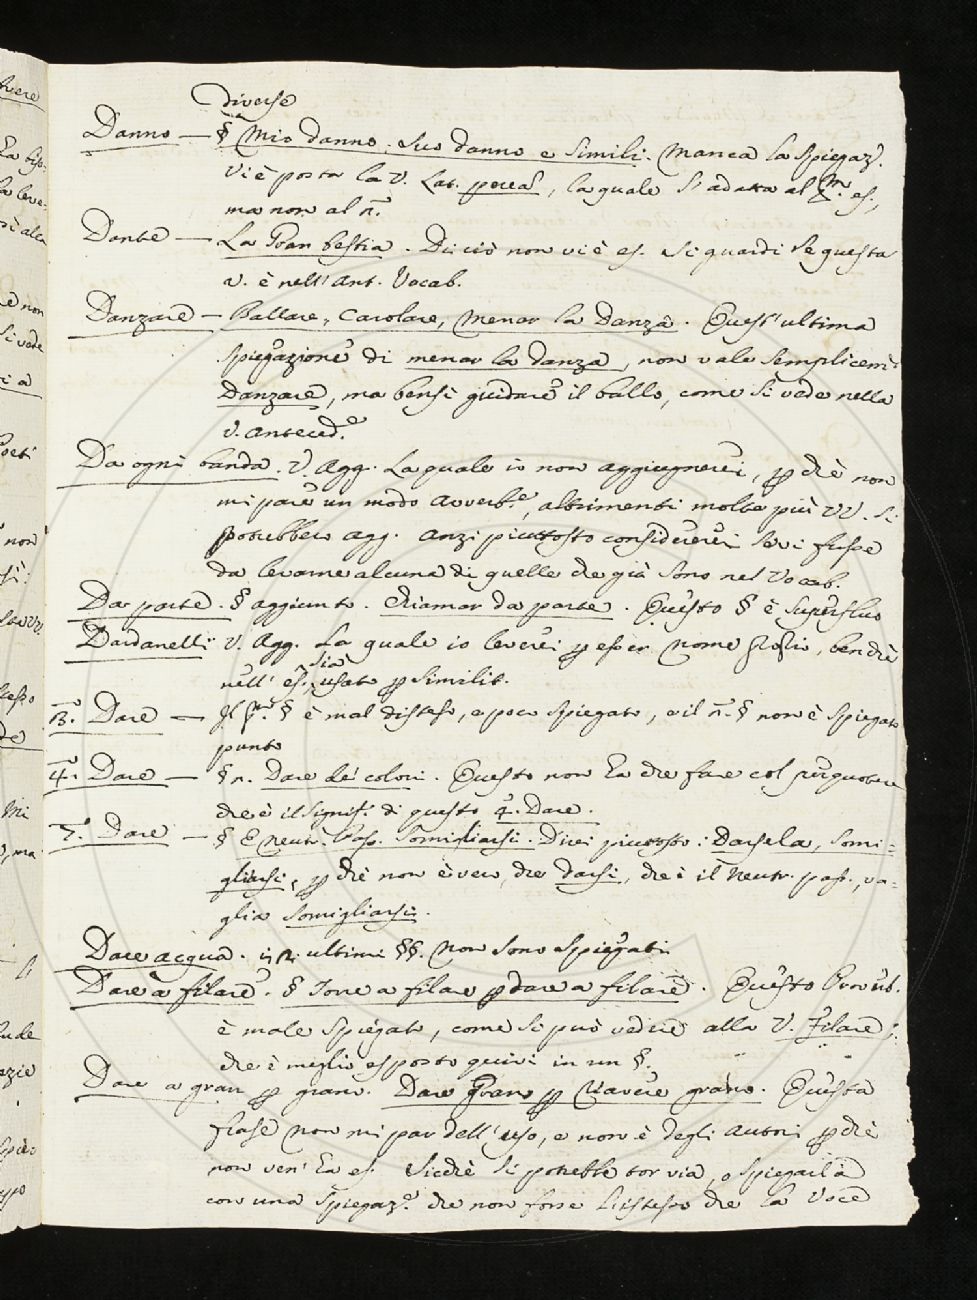 diverse
Danno — § Mio danno. Suo danno e simili. Manca la spiegaz.e
Vi è posta la V. Lat. , la quale s'adatta al p.mo es.,
ma non al n.
Dante — La Gran bestia. Di ciò non vi è es. Si guardi se questa
v. è nell'Ant. Vocab.
Danzare — Ballare, Carolare, menar la Danza. Quest'ultima
spiegazione di menar la danza, non vale semplicem.te
Danzare, ma bensì guidare il ballo, come si vede nella
V. anteced.e
Da ogni banda. V. Agg. La quale io non aggiugnerei, p chè non
mi pare un modo avverb.e, altrimenti molte più VV. si
potrebbero agg. anzi piuttosto considererei se vi fusse
da levarne alcuna di quelle che già sono nel Vocab.
Da parte. § aggiunto. Chiamar da parte. Questo § è superfluo
Dardanelli V. Agg. La quale io leverei p esser nome proprio, benchè
nell'es. sia usato p similit.
3. Dare — Il p.mo § è mal disteso, e poco spiegato, e il n. § non è spiegato
punto
4. Dare — § n. Dare de' colori. Questo non ha che fare col percuotere
che è il signif.o di questo 4. Dare.
7. Dare — § E neutr. Pass. Somigliarsi. Direi piuttosto: Darsela, Somi=
gliarsi, p chè non è vero, che darsi, che è il Neutr. pass., va=
glia somigliarsi.
Dare acqua. i n. ultimi §§. Non sono spiegati
Dare a filare. § Torre a filare p dare a filare. Questo Proverb.
è male spiegato, come si può vedere alla V. Filare,
che è meglio esposto quivi in un §.
Dare a gran p grano. Dare Grano p ricavere grano. Questa
frase non mi par dell'uso, e non è degli Autori p chè
non ven' ha es. Sicchè si potrebbe tor via, o spiegarla
con una spiegaz.e che non fosse l'istesso che la Voce